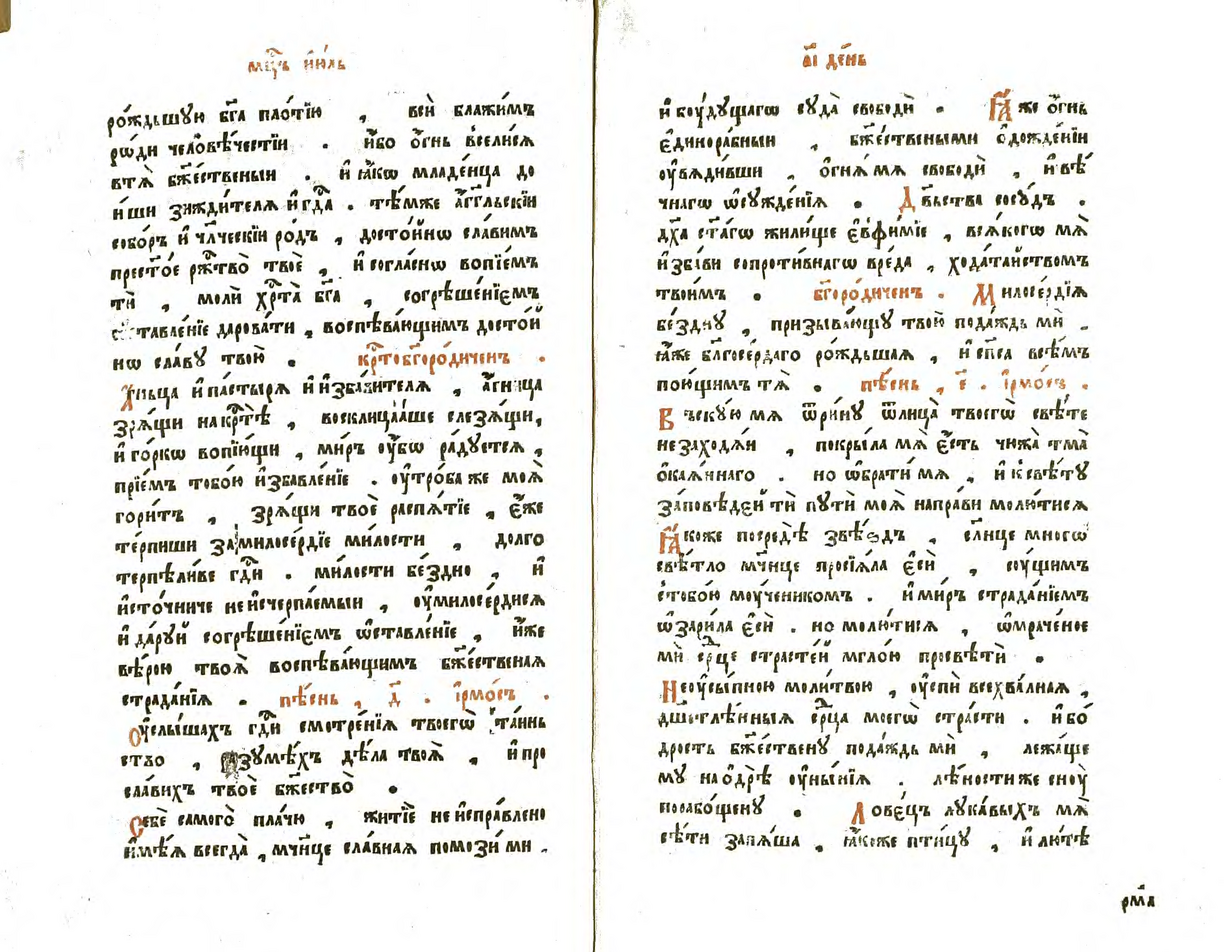 мцⷭ҇ъ і҆ю́ль
ро́ждьшую бг҃а пло́тїю , вси̑ блажи́мъ
рѡ́ди человѣ́честїи . и҆́бо ѻ҆́гнь вселисѧ
втѧ̀ бж҃е́ственыи . и҆ ꙗ҆́кѡ младе́нца до
и́ши зижди́телѧ и҆ гдⷭ҇а . тѣ́мже а҆́гг҃льскїи
собо́ръ и҆ чл҃ческїи ро́дъ , досто́йнѡ сла́вимъ
престо́е ржⷭ҇тво̀ твоѐ , и҆ согла́снѡ вопїе́мъ
тѝ , молѝ хрⷭ҇та̀ бг҃а , согрѣше́нїємъ
ставле́нїе дарова́ти , воспѣва́ющимъ досто́й
нѡ сла́ву твою̀ . крⷭ҇тобг҃оро́диченъ .
А҆́гньца и҆ па́стырѧ и҆ и҆зба́вителѧ , а҆́гница
зрѧ́щи на крⷭ҇тѣ̀ , восклица́ше слезѧ́щи,
и҆ го́ркѡ вопїю́щи , ми́ръ ѹ҆́бѡ ра́дуетсѧ ,
прїе́мъ тобо́ю и҆збавле́нїе . ѹ҆тро́ба же моѧ̀
гори́тъ , зрѧ́щи твоѐ распѧ́тїе , є҆́же
терпи́ши за милосе́рдїе ми́лости , долго
терпѣли́ве гдⷭ҇и . ми́лости бе́здно , и҆
и҆сто́чниче неисчерпа́емыи , ѹ҆милосе́рдисѧ
и҆ да́руй согрѣше́нїємъ ѡ҆ставле́нїе , и҆́же
вѣ́рою твоѧ̀ воспѣва́ющимъ бж҃е́ственаѧ
страда́нїѧ . пѣ́снь , д҃ . і҆рмо́съ .
Оу҆слы́шахъ гдⷭ҇и смотре́нїѧ твоегѡ̀ та́инь
ство , разумѣ́хъ дѣла̀ твоѧ̀ , и҆ про
сла́вихъ твоѐ бж҃ество̀ .
Себѐ самого̀ пла́чю , житїѐ неиспра́влено
и҆мѣ́ѧ всегда̀ , мч҃нице сла́внаѧ помозѝ ми .
а҃і де́нь
и҆ боу́дущагѡ суда̀ свободѝ . Ꙗ҆́же ѻ҆́гнь
є҆динора́вныи , бж҃е́ствеными ѻ҆дожде́нїи
оу҆вѧди́вши , ѻ҆гнѧ̀ мѧ свободѝ , и҆ вѣ́
чнагѡ ѡ҆сужде́нїѧ . Дв҃ьства сосу́дъ .
дх҃а ст҃а́гѡ жили́ще є҆ѵфи́мїе , всѧ́когѡ мѧ̀
и҆зба́ви сопроти́внагѡ вре́да , хода́таиствомъ
твои́мъ . бг҃оро́диченъ . Милосе́рдїѧ
бе́здну , призыва́ющу твою̀ пода́ждь мѝ .
ꙗ҆́же бл҃госе́рдаго ро́ждьшаѧ , и҆ сп҃са всѣ́мъ
пою́щимъ тѧ̀ . пѣ́снь , є҃ . і҆рмо́съ .
Въску́ю мѧ ѿри́ну ѿлица̀ твоегѡ̀ свѣ́те
незаходѧ́и , покры́ла мѧ̀ є҆́сть чю́жа тма̀
ѻ҆каѧ́ннаго . но ѡ҆братѝ мѧ , и҆ к свѣ́ту
за́повѣдей тѝ пути̑ моѧ̀ напра́ви молю́тисѧ
Ꙗ҆́коже посредѣ̀ звѣ́здъ , сл҃нце многѡ
свѣ́тло мч҃нице просїѧ́ла є҆сѝ , соу́щимъ
стобо́ю моу́ченикомъ . и҆ ми́ръ страда́нїемъ
ѡ҆зари́ла є҆сѝ . но молю́тисѧ , ѡ҆мраче́ное
мѝ срⷣце страсте́й мгло́ю просвѣтѝ .
Неоу҆сы́пною моли́твою , оу҆спѝ всехва́лнаѧ ,
дш҃етлѣ́нныѧ срⷣца моегѡ̀ стра́сти . и҆ бо́
дрость бж҃е́ствену пода́ждь мѝ , лежа́ще
му на ѻ҆дрѣ̀ оу҆ны́нїѧ . лѣ́ности же сноу̀
порабо́щену . Лове́цъ лука́выхъ мѧ̀
сѣ́ти запѧ́ша , ꙗ҆́коже пти́цу , и҆ лю́тѣ
рм҃а